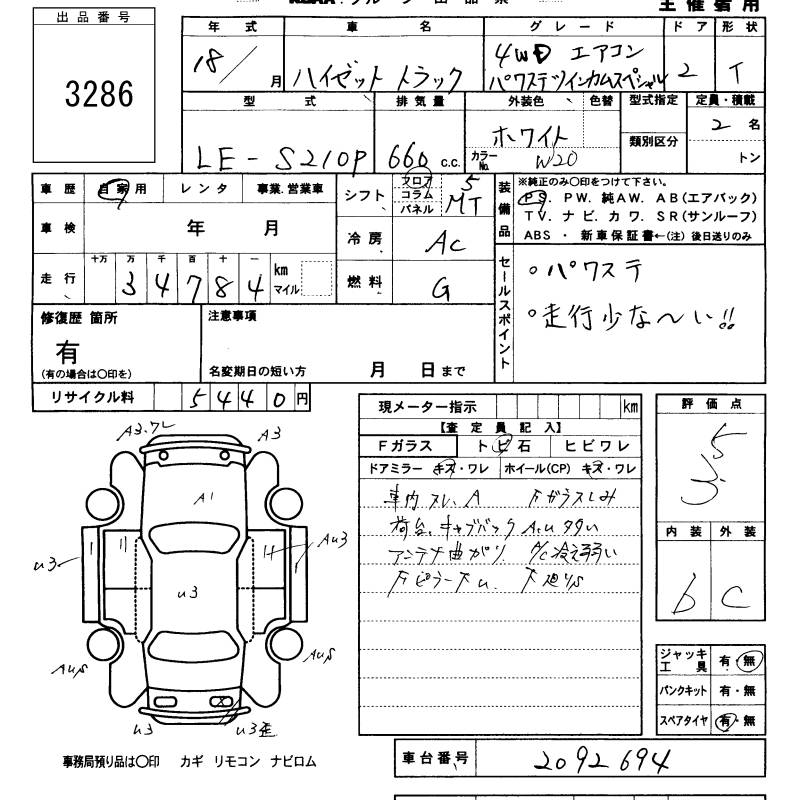 出品番号
3286
年式 車名 グレード ドア 形状
18/ 月 ハイゼット トラック 4WD エアコン パワステツインカムスペシャル 2 T
型式 排気量 外装色 色替 型式指定 定員・積載
LE-S210P 660 c.c. ホワイト カラーNo. W20 類別区分 2 名 トン
車歴 自家用 レンタ 事業.営業車
車検 年 月
走行 十万 万 千 百 十 一
34784 km マイル
シフト フロア コラム パネル 5 MT
冷房 AC
燃料 G
装備品
※純正のみ〇印をつけて下さい。
PS. PW. 純AW. AB(エアバック)
TV. ナビ. カワ. SR(サンルーフ)
ABS ・ 新車保証書←(注)後日送りのみ
セールスポイント
○パワステ
○走行少な〜い!!
修復歴 箇所
有
(有の場合は〇印を)
注意事項
名変期日の短い方 月 日まで
リサイクル料 5440円
現メーター指示 km
【査定員記入】
Fガラス トビ石 ヒビワレ
ドアミラー キズ・ワレ ホイール(CP) キズ・ワレ
車内スレ、A 下ガラスしみ
荷台、キャブバック A,u 多い
アンテナ曲がり A/C冷え弱い
評価点
3.5
内装 外装
b C
A3.ワレ A3
A1
u3 u3 Au3
AuS AuS
u3 u3歪
ジャッキ工具 有・無
パンクキット 有・無
スペアタイヤ 有・無
事務局預り品は〇印 カギ リモコン ナビロム
車台番号 2092694